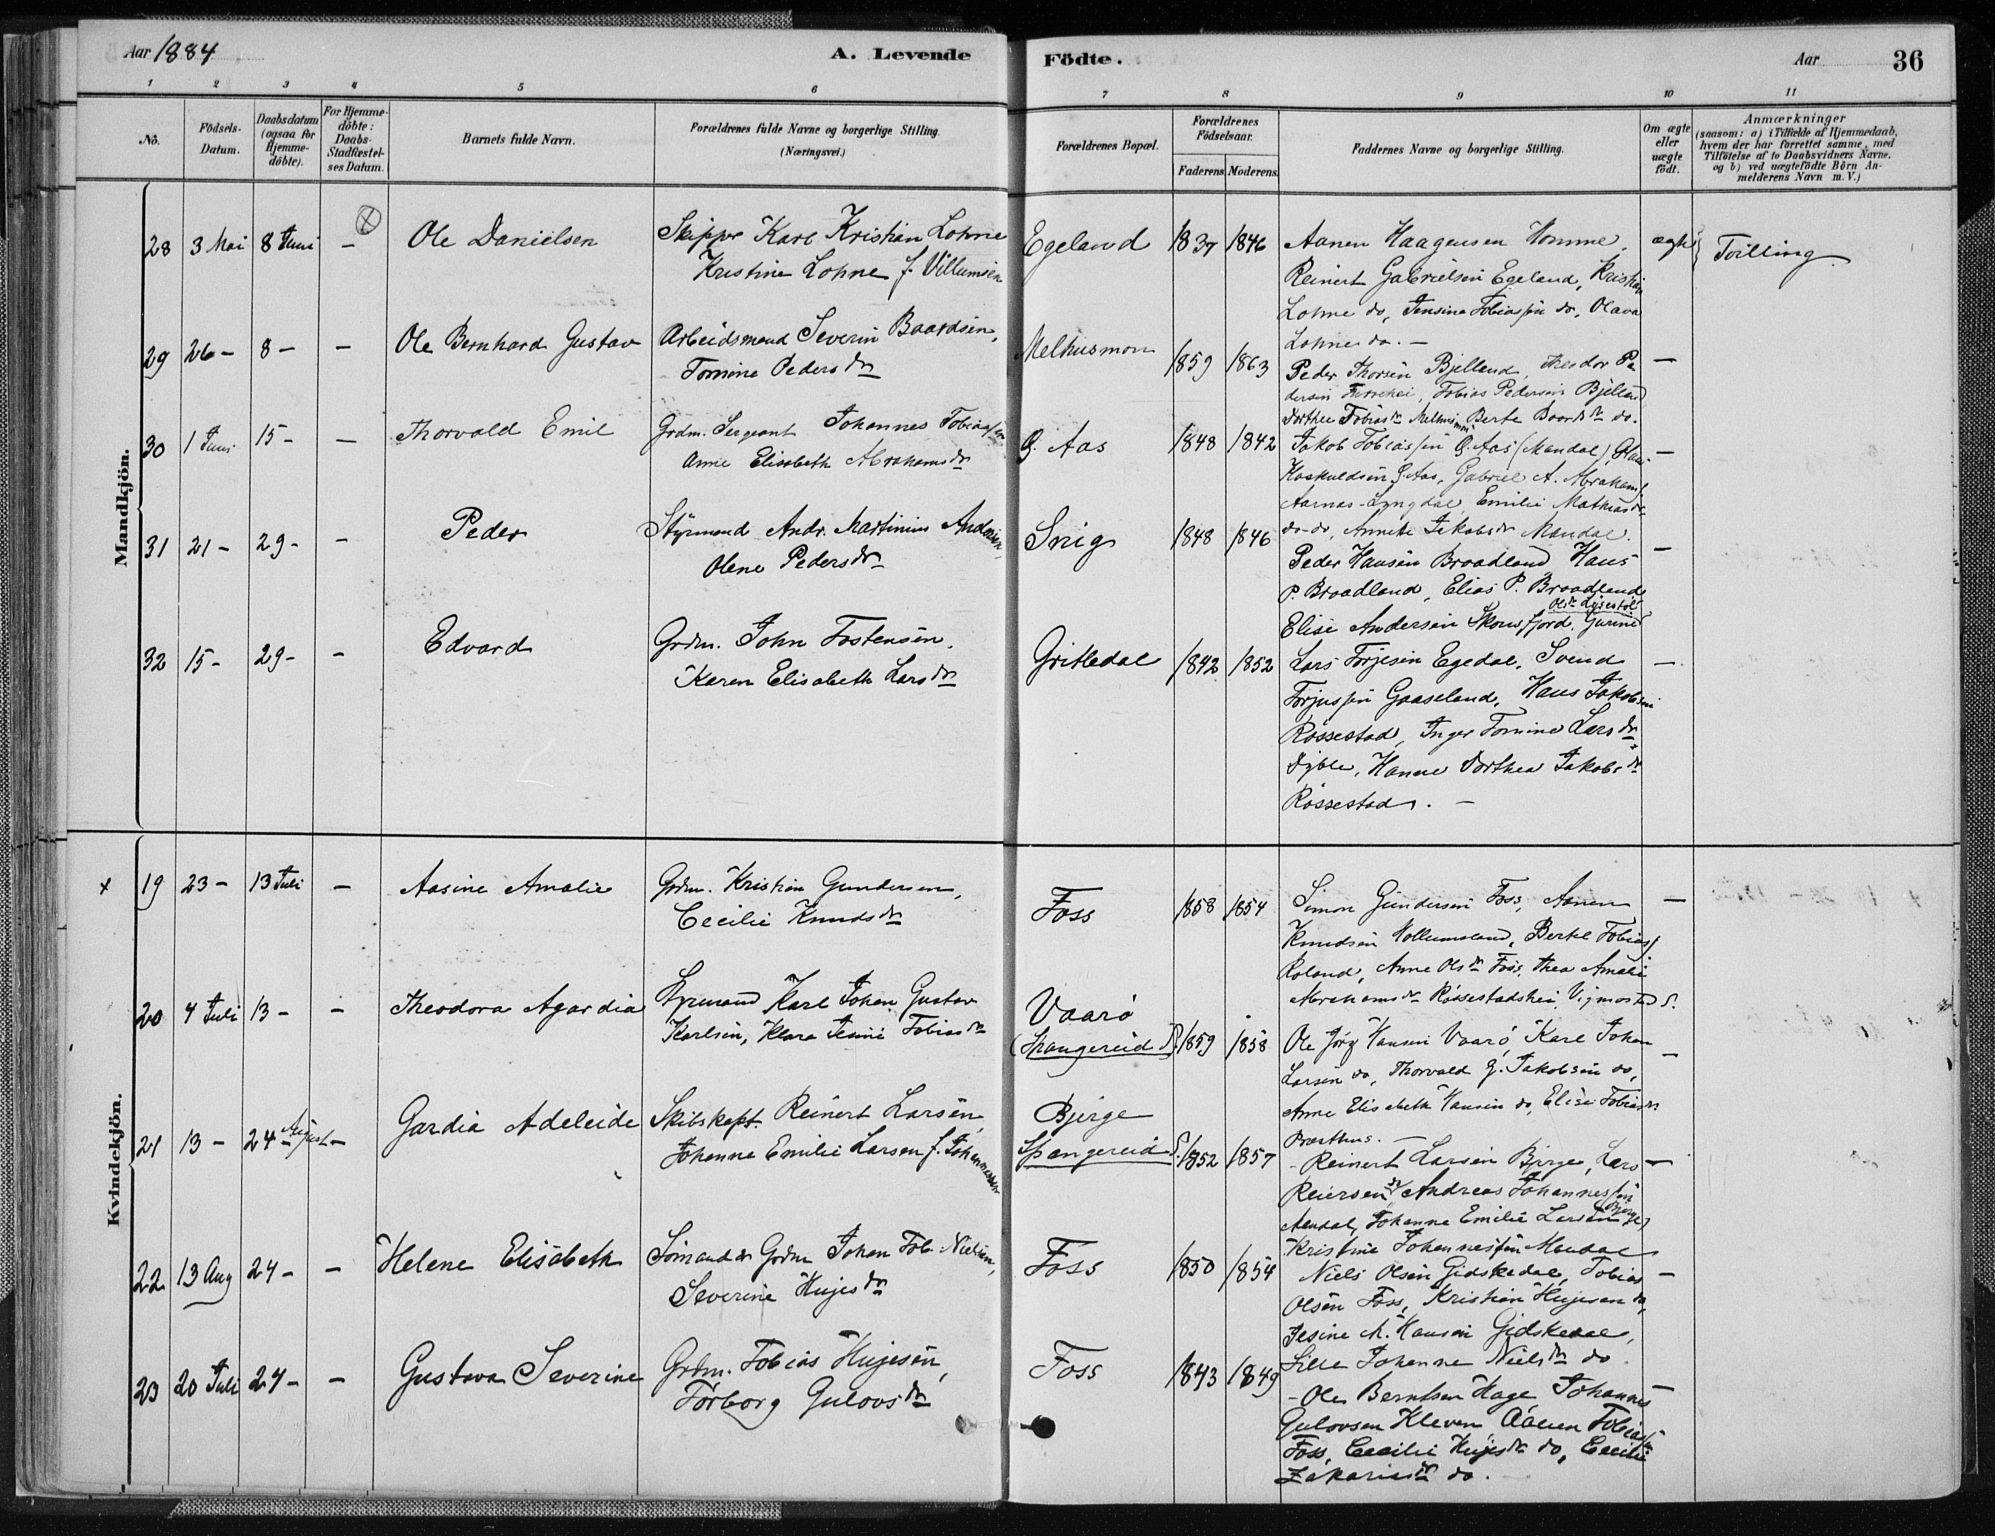 Aar 1884
A. Levende Födte.
Aar
36
1 2 3 4 5 6 7 8 9 10 11
No.
Födsels-Datum.
Daabsdatum (ogsaa for Hjemme-döbte).
For Hjemme-döbte: Daabs-Stadfæstel-ses Datum.
Barnets fulde Navn.
Forældrenes fulde Navne og borgerlige Stilling.
(Næringsvei.)
Forældrenes Bopæl.
Forældrenes Födselsaar.
Faderens. Moderens.
Faddernes Navne og borgerlige Stilling.
Om ægte eller uægte födt.
Anmærkninger
(saasom: a) i Tilfælde af Hjemmedaab,
hvem der har forrettet samme, med
Tilföielse af to Daabsvidners Navne,
og b) ved uægtefödte Börn An-
melderens Navn m. V.)
Mandkjön.
28 3 Mai 8 Juni - Ole Danielsen
Skipper Karl Kristian Lohne
Kristine Lohne f. Villumsen
Egeland 1837 1846
Aanen Haagensen Homme,
Reinert Gabrielsen Egeland, Kristian
Lohne do, Jensine Tobiassen do, Olava
Lohne do. -
ægte
Tvilling.
29 26 - 8 - - Ole Bernhard Gustav
Arbeidsmand Severin Baardsen,
Tomine Pedersdr
Melhusmon 1859 1863
Peder Thorsen Bjelland, Theodor Pe-
dersen, Tobias Pedersen Bjelland
Dorthea Tobiasdr Melhusmon Berte Baardsdr do.
-
30 1 Juni 15 - - Thorvald Emil
Grdm. Sergeant Johannes Tobiassen
Anne Elisabeth Abrahamsdr
Ø. Aas 1848 1842
Jakob Tobiassen Ø. Aas (Mandal),
Haskuldsen Ø. Aas, Gabriel A. Abrahams
Aarnes - Lyngdal, Emilie Mathiasdr
do - do, Annike Jakobsdr Mandal.
-
31 21 - 29 - - Peder
Styrmand Andr. Martinius Andersen,
Olene Pedersdr
Snig 1848 1846
Peder Hansen Braadland Hans
P. Braadland, Elias P. Braadland
Elise Andersen Skoufjord, Gurine
Olsdr
-
32 15 - 29 - - Edvard
Grdm. John Tostensen,
Karen Elisabeth Larsdr
Gritledal 1842 1852
Lars Torjesen Egedal, Svend
Torjussen Gaaseland, Hans Jakobsen
Røssestad, Inger Tomine Larsdr
Dyble, Hanne Dorthea Jakobsdr
Røssestad. -
-
Kvindekjön.
x 19 23 - 13 Juli - Aasine Amalie
Grdm. Kristian Gundersen,
Cecilie Knudsdr
Foss 1858 1854
Simon Gundersen Foss, Aanen
Knudsen Vollumsland, Bertel Tobias
Roland, Anne Olsdr Foss, Thea Amalie
Abrahamsdr Røssestadshei Vigmostad S.
-
20 4 Juli 13 - - Theodora Agardia
Styrmand Karl Johan Gustav
Karlsen, Klara Jenine Tobiasdr
Vaarø
(Spangereid S.) 1859 1858
Ole Jørg Hansen Vaarø, Karl Johan
Larsen do, Thorvald G. Jakobsen do,
Anne Elisabeth Hansen do, Elise Tobiasdr
Præsthus. -
-
21 13 - 24 August - Gardia Adeleide
Skibskapt. Reinert Larsen,
Johanne Emilie Larsen f. Johannesdr
Bjerge
Spangereid S. 1852 1857
- Reinert Larsen Bjerge, Lars
Reiersen do, Andreas Johannessen
Mandal, Johanne Emilie Larsen Bjerge
Kristine Johannessen Mandal
-
22 13 Aug 24 - - Helene Elisabeth
Sömand & Grdm Johan Tob. Nielsen,
Severine Hujesdr
Foss 1850 1854
Niels Olsen Gidskedal, Tobias
Olsen Foss, Kristian Hujesen do,
Jesine M. Hansen Gidskedal,
Sille Johanne Nielsdr do.
-
23 20 Juli 24 - - Gustava Severine
Grdm. Tobias Hujesen,
Torborg Gulovsdr
Foss 1843 1849
- Ole Berntsen Hage Johannes
Gulovsen Kleven, Aanen Tobiassen
Foss, Cecilie Hujesdr do, Cecilie
Zakariasdr do. -
-